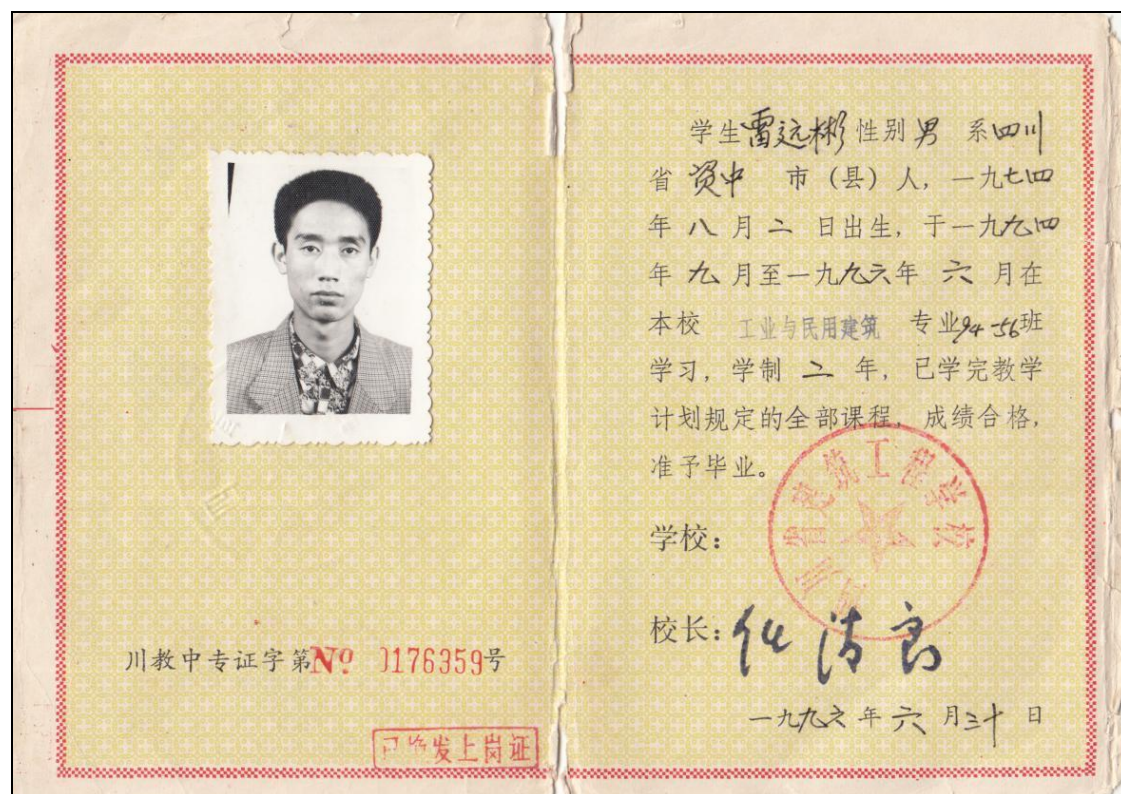 川教中专证字第№ 0176359号
已换发上岗证
学生雷远彬性别男 系四川
省 资中 市（县）人，一九七四
年 八 月 二 日出生，于一九九四
年 九 月至一九九六年 六 月在
本校 工业与民用建筑 专业94-56班
学习，学制 二 年，已学完教学
计划规定的全部课程，成绩合格，
准予毕业。
学校：
四川省建筑工程学校
校长：
一九九六年 六 月三十 日